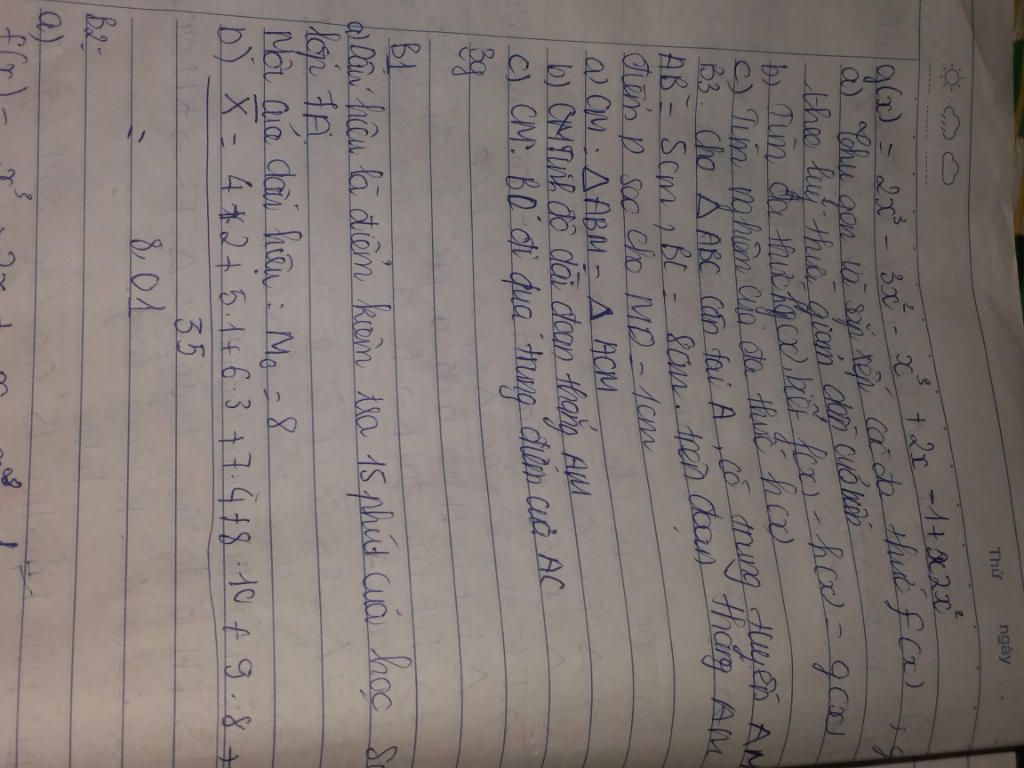 Thứ ngày
g(x) = -2x³ - 3x² - x³ + 2x - 1 + x 2x²
a) Thu gọn và sắp xếp các đa thức f(x), g
theo luỹ thừa giảm dần của biến
b) Tìm đa thức h(x) biết f(x) - h(x) = g(x)
c) Tìm nghiệm của đa thức h(x)
B3: Cho Δ ABC cân tại A, có trung tuyến AM
AB = 5cm, BC = 8cm. Trên đoạn thẳng AM
điểm D sao cho MD = 1cm
a) CM: Δ ABM = Δ ACM
b) Tính độ dài đoạn thẳng AM
c) CM: BD đi qua trung điểm của AC
Bg
B1
a) Dấu hiệu là điểm kiểm tra 15 phút của học
lớp 7A
Mốt của dấu hiệu: M₀ = 8
b) X̄ = 4.2 + 5.1 + 6.3 + 7.4 + 8.10 + 9.8 +
35
= 8,01
B2:
a)
f(x) = x³ 2x + x